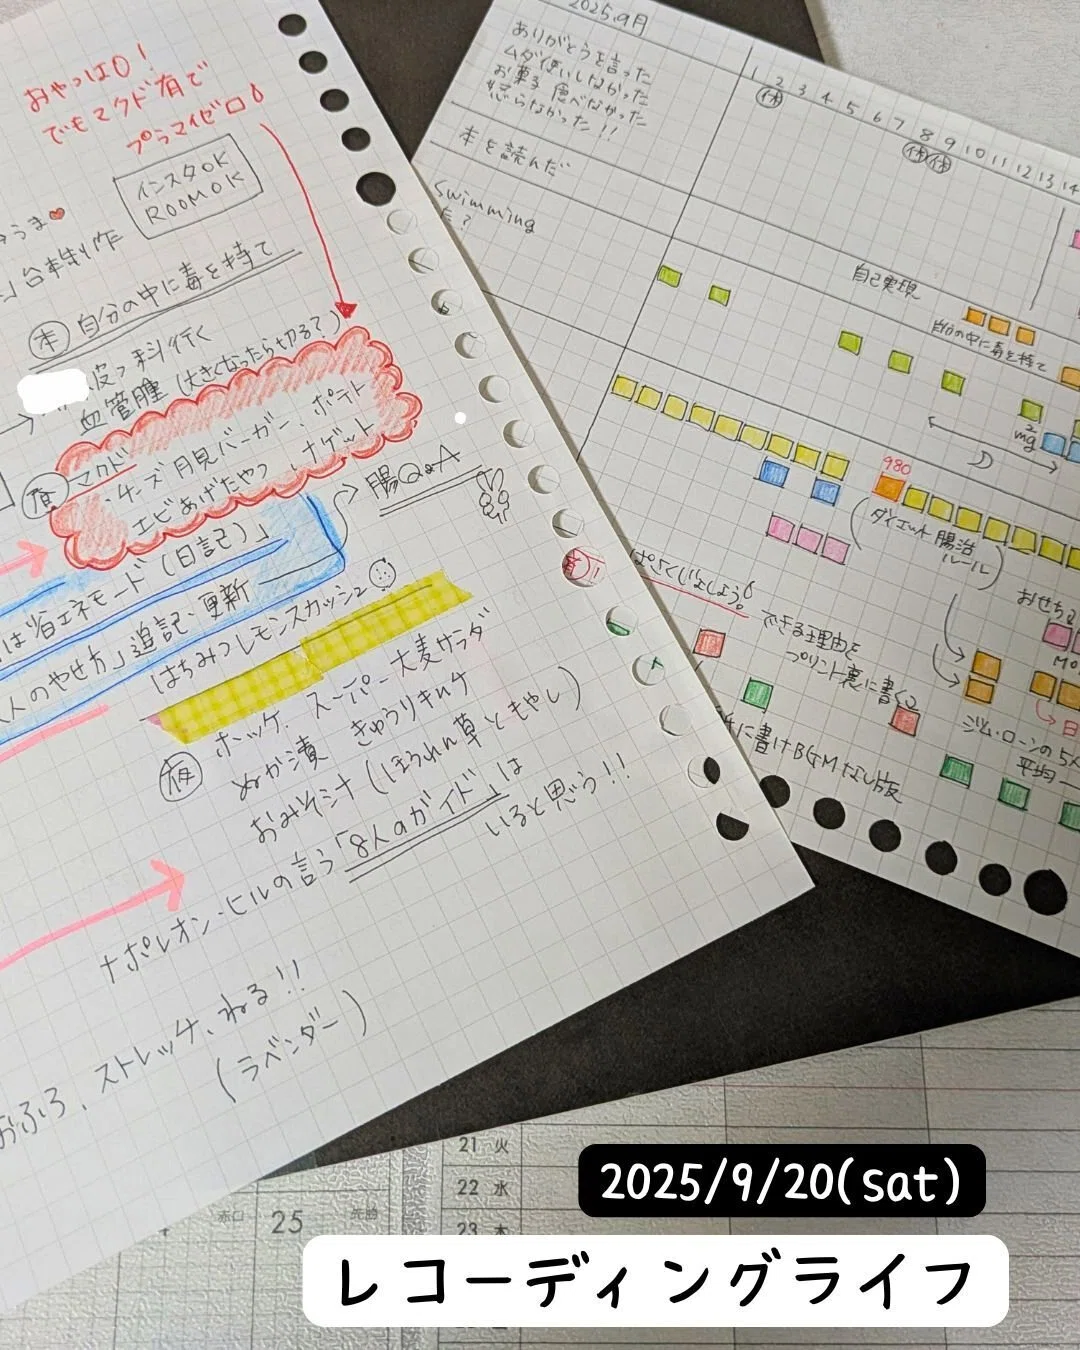 おやつは0!
でもマクド有で
プラマイゼロ
インスタOK
ROOM OK
うま
台本制作
本 自分の中に毒を持て
皮フ科行く
血管腫(大きくなったら切る?)
マクド
・チーズ月見バーガー、ポテト
エビあげたやつ、ナゲット
腸Q&A
は省エネモード(日記)」
人のやせ方」追記・更新
はちみつレモンスカッシュ
夜 ホッケ、スーパー大麦サラダ
ぬか漬 きゅうりキムチ
おみそ汁(ほうれん草ともやし)
ナポレオン・ヒルの言う「8人のガイド」は
いると思う!!
おふろ、ストレッチ、ねる!!
(ラベンダー)
2025.9月
ありがとうを言った
ムダ使いしなかった
お菓子食べなかった
怒らなかった!!
本を読んだ
Swimming
1 2 3 4 5 6 7 8 9 10 11 12 13 14
休
休 休
自己実現
自分の中に毒を持て
2
mg
980
(ダイエット腸活
ルール)
おせち
できる理由を
プリント裏に書く
に書けBGMなし版
ジム・ローンの5人
平均
21 火
22 水
23 木
赤口 25 先勝
2025/9/20(sat)
レコーディングライフ